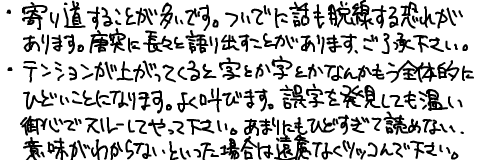 ・寄り道することが多いです。ついでに話も脱線する恐れが
あります。唐突に長々と語り出すことがあります、ご了承下さい。
・テンションが上がってくると字とか字とかなんかもう全体的に
ひどいことになります。よく叫びます。誤字を発見しても温い
御心でスルーしてやって下さい。あまりにもひどすぎて読めない、
意味がわからないといった場合は遠慮なくツッコんで下さい。